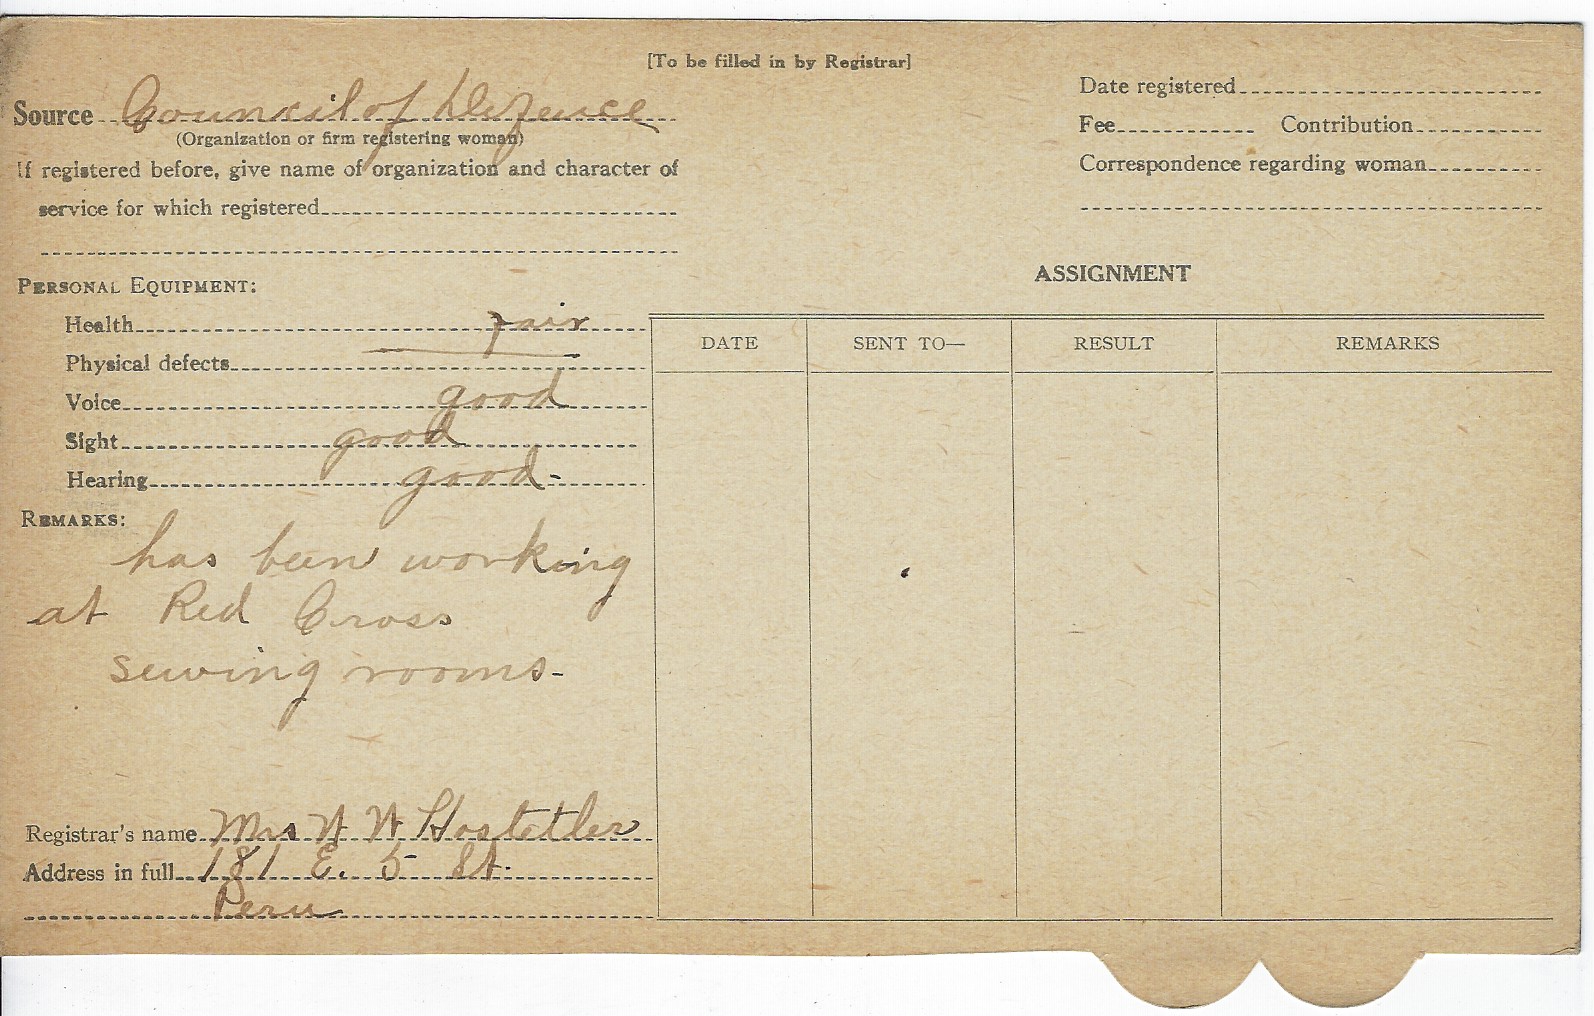 [To be filled in by Registrar]
Source Council of Defence
(Organization or firm registering woman)
If registered before, give name of organization and character of
service for which registered
Date registered
Fee Contribution
Correspondence regarding woman
PERSONAL EQUIPMENT:
Health fair
Physical defects
Voice good
Sight good
Hearing good-
REMARKS:
has been working
at Red Cross
sewing rooms-
Registrar's name Mrs Hostetler
Address in full 181 E. 5 St.
Peru
ASSIGNMENT
DATE SENT TO— RESULT REMARKS